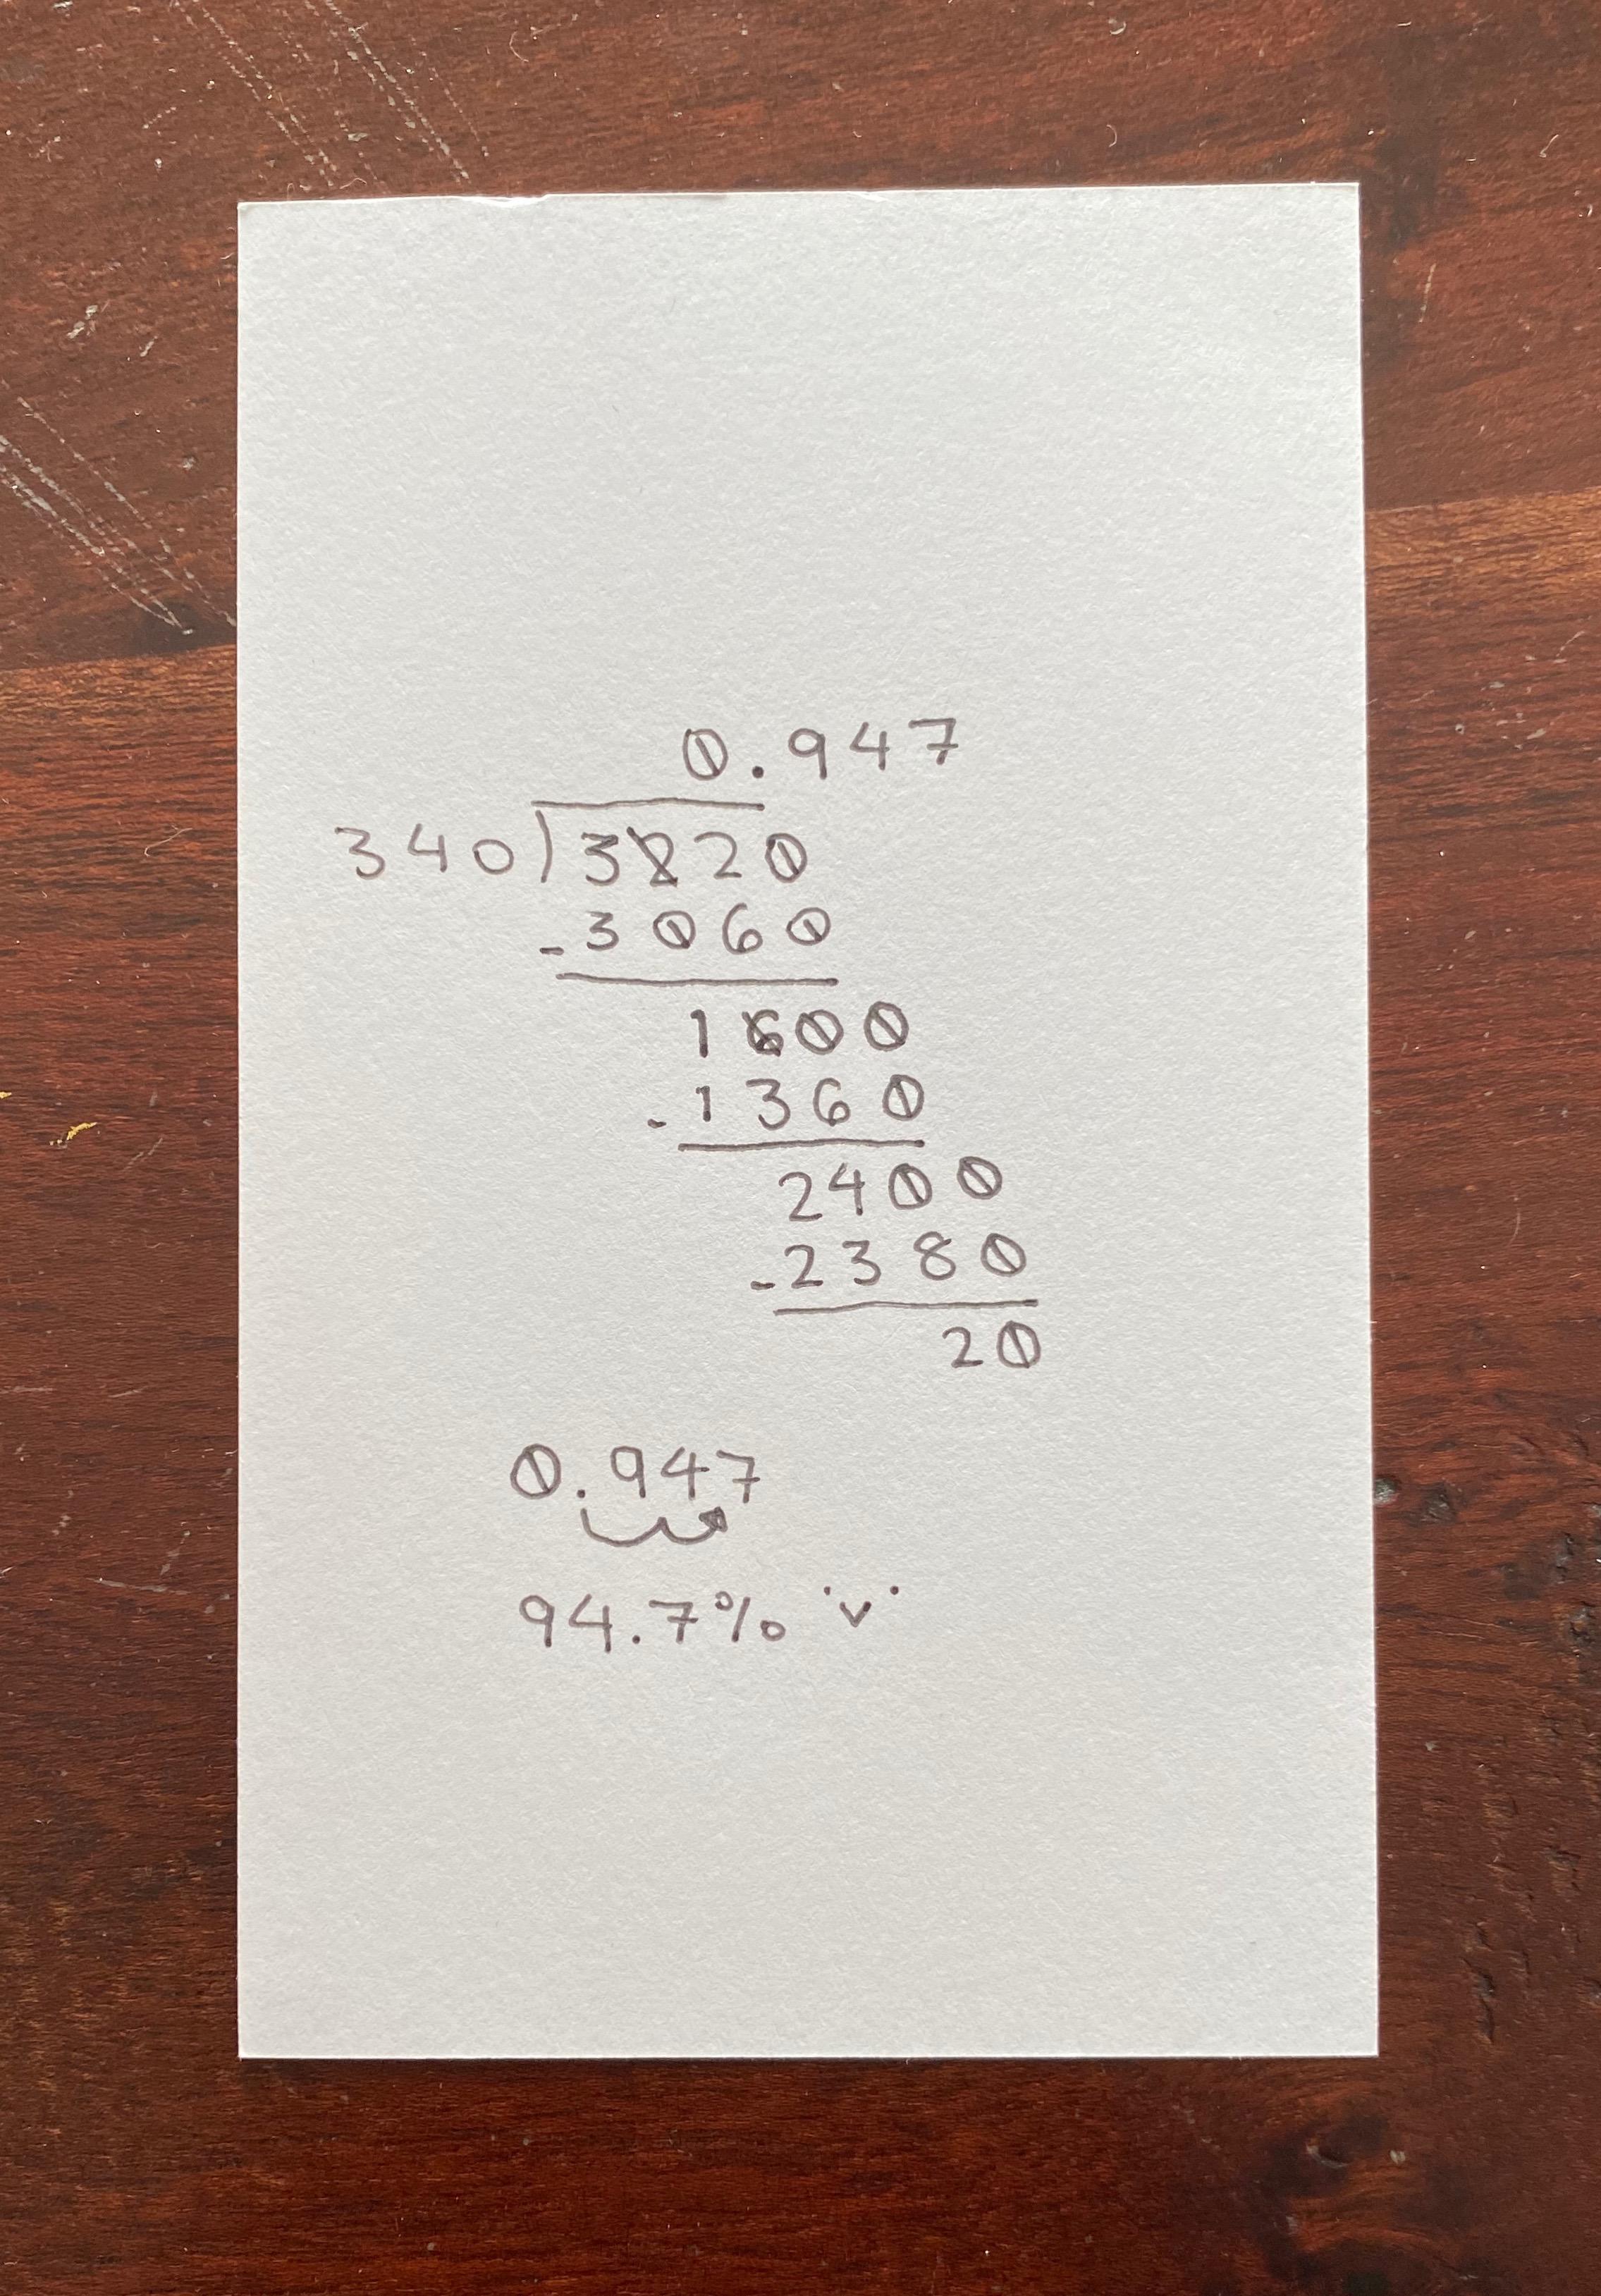 0.947
340)3220
-3060
1600
-1360
2400
-2380
20
0.947
94.7% ˙v˙